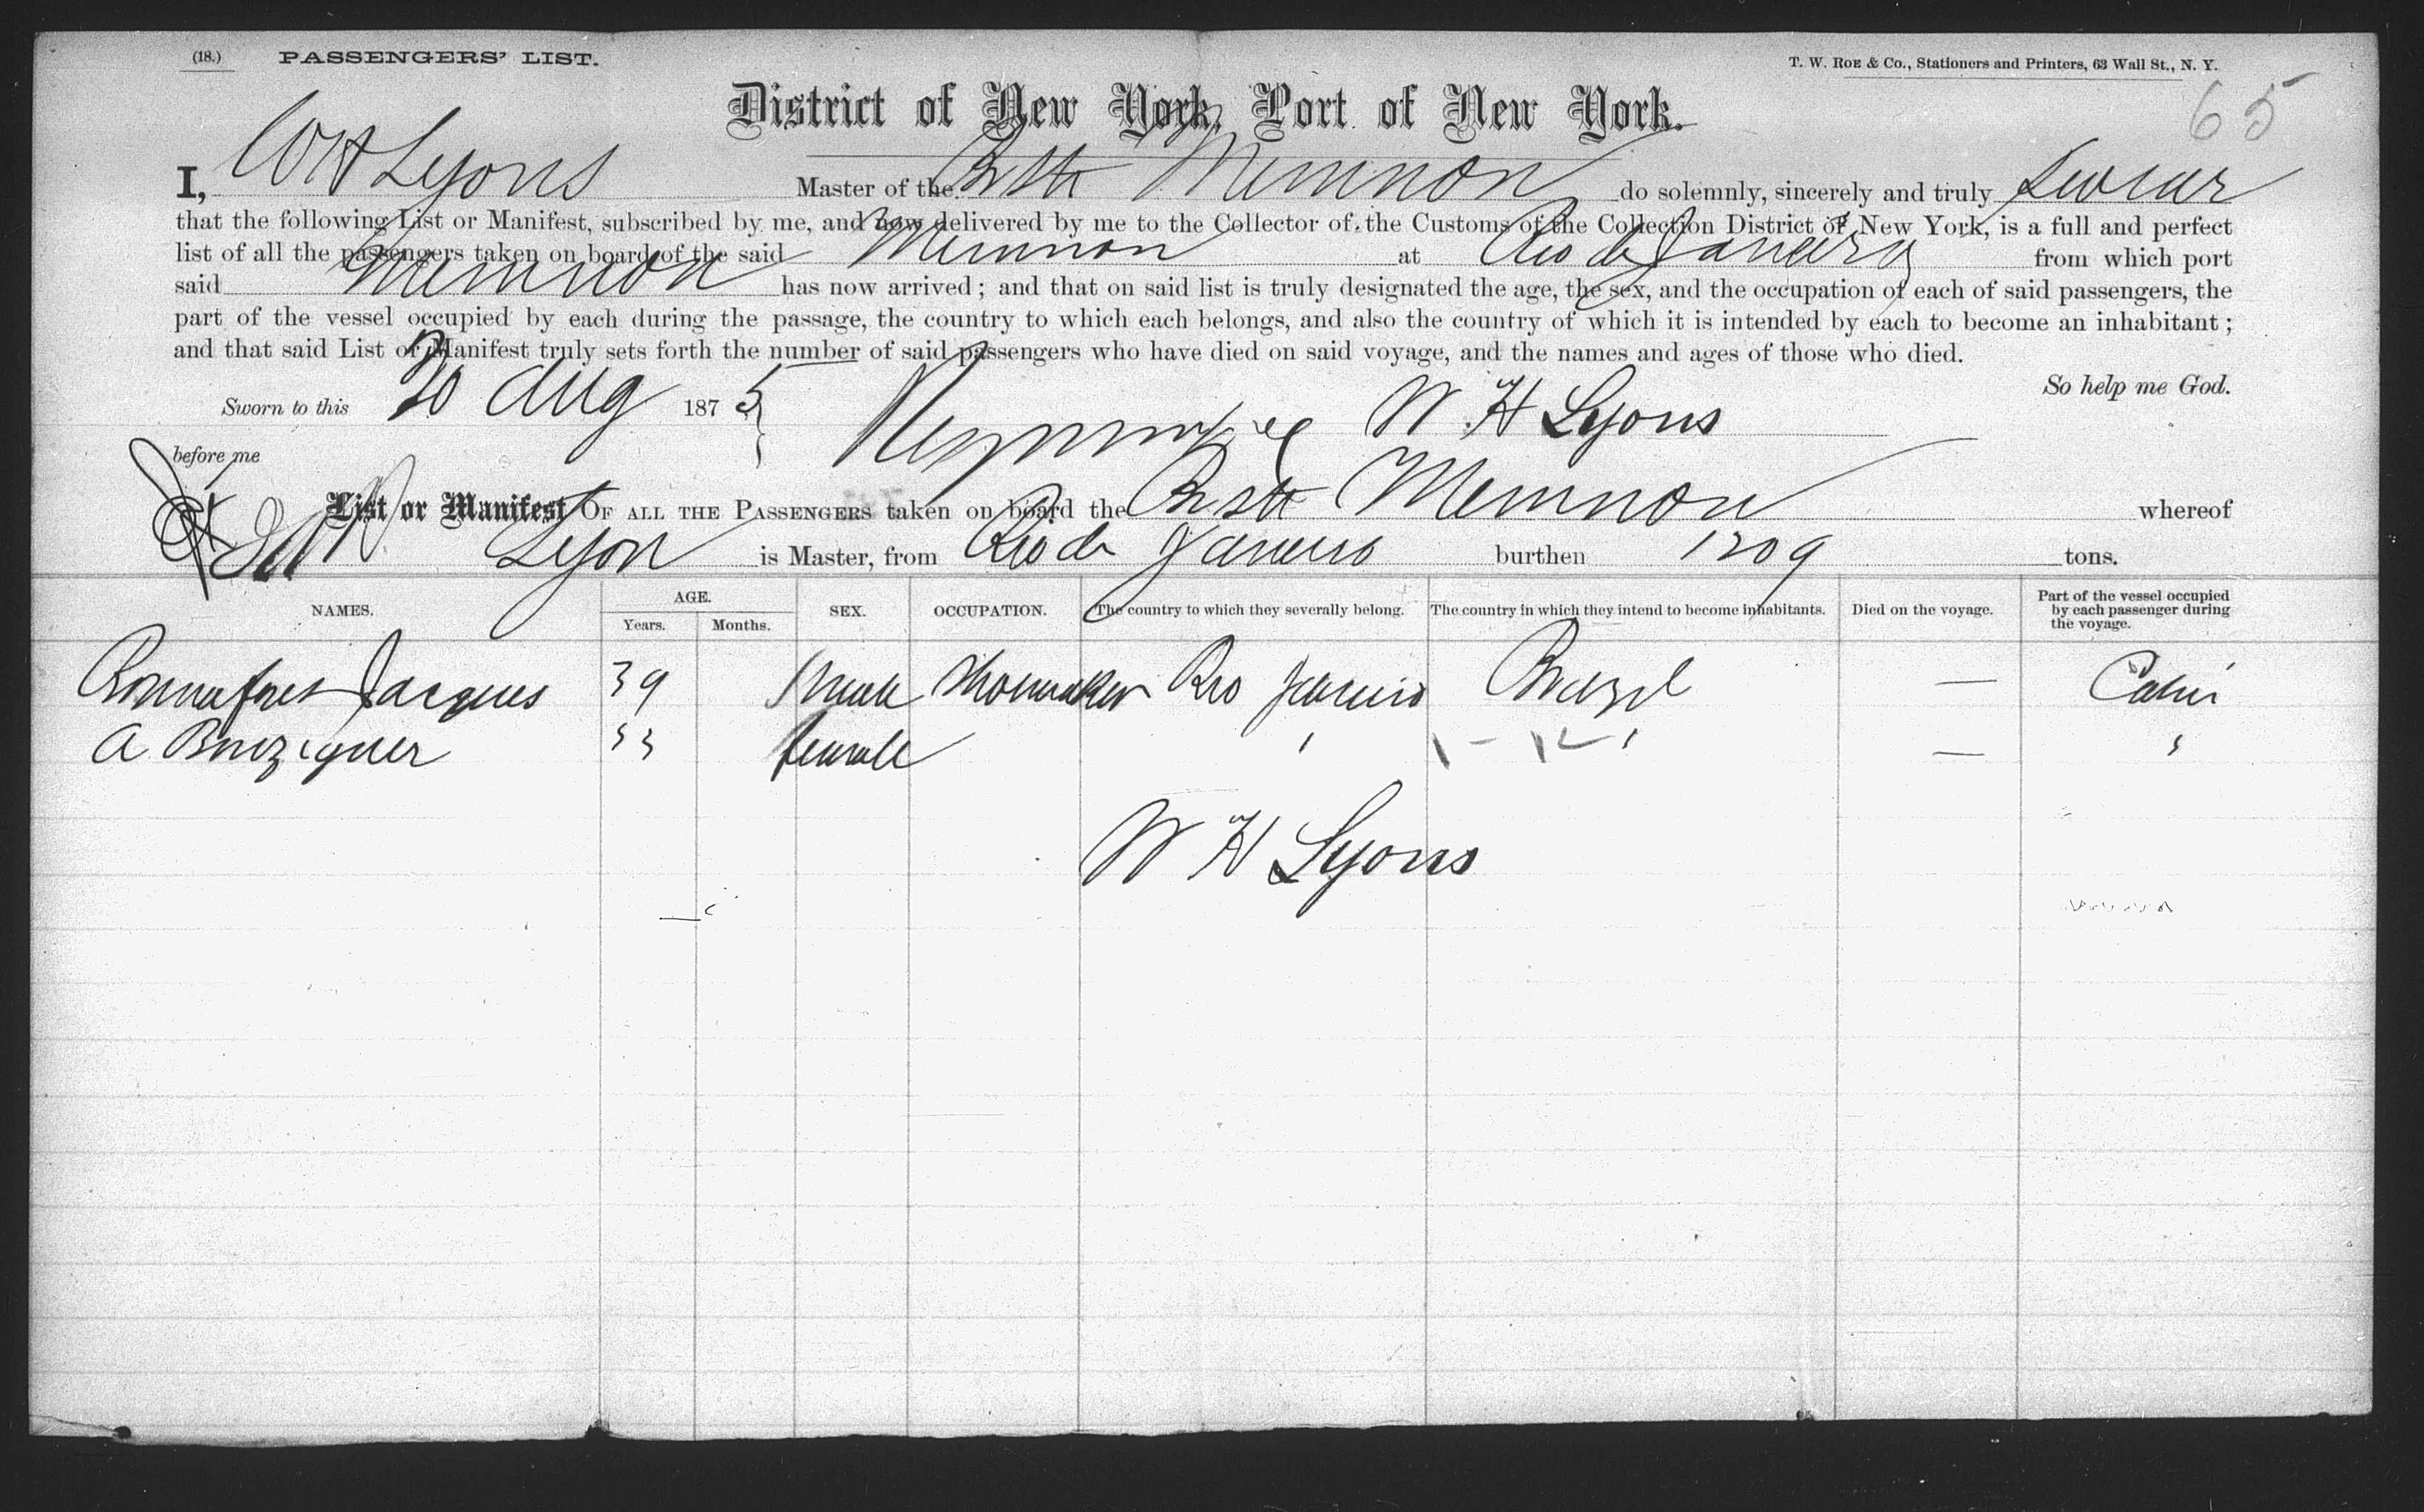 (18.) PASSENGERS' LIST.
T. W. ROE & Co., Stationers and Printers, 63 Wall St., N. Y.
65
District of New York, Port of New York.
I, W H Lyons Master of the Br Str Memnon do solemnly, sincerely and truly swear
that the following List or Manifest, subscribed by me, and now delivered by me to the Collector of the Customs of the Collection District of New York, is a full and perfect
list of all the passengers taken on board of the said Memnon at Rio de Janeiro from which port
said Memnon has now arrived; and that on said list is truly designated the age, the sex, and the occupation of each of said passengers, the
part of the vessel occupied by each during the passage, the country to which each belongs, and also the country of which it is intended by each to become an inhabitant;
and that said List or Manifest truly sets forth the number of said passengers who have died on said voyage, and the names and ages of those who died.
So help me God.
Sworn to this 20 Aug 1875
W H Lyons
before me
List or Manifest OF ALL THE PASSENGERS taken on board the Br Str Memnon whereof
Lyon is Master, from Rio de Janeiro burthen 1209 tons.
NAMES. AGE. Years. Months. SEX. OCCUPATION. The country to which they severally belong. The country in which they intend to become inhabitants. Died on the voyage. Part of the vessel occupied by each passenger during the voyage.
Jacques 39 male Shoemaker Rio Janeiro Brazil — Cabin
A 33 female " " — "
W H Lyons